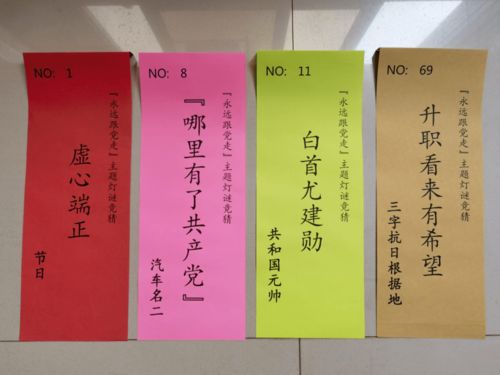 NO: 1
『永远跟党走』主题灯谜竞猜
虚心端正
节日
NO: 8
『永远跟党走』主题灯谜竞猜
『哪里有了共产党』
汽车名二
NO: 11
『永远跟党走』主题灯谜竞猜
白首尤建勋
共和国元帅
NO: 69
『永远跟党走』主题灯谜竞猜
升职看来有希望
三字抗日根据地